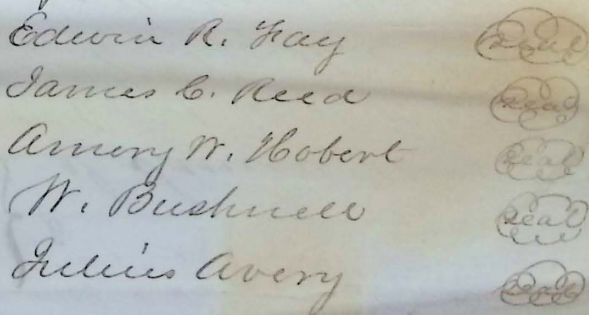 Edwin R. Fay seal
James C. Reed seal
Amory W. Hobert seal
W. Bushnell seal
Julius Avery seal